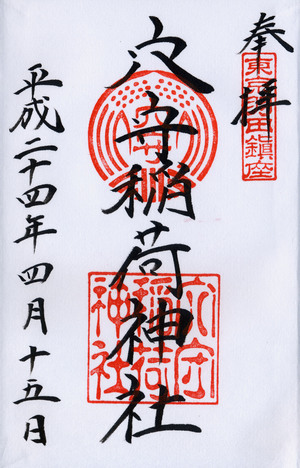 奉拝
東京羽田鎮座
穴守稲荷神社
穴守
稲荷
神社
平成二十四年四月十五日